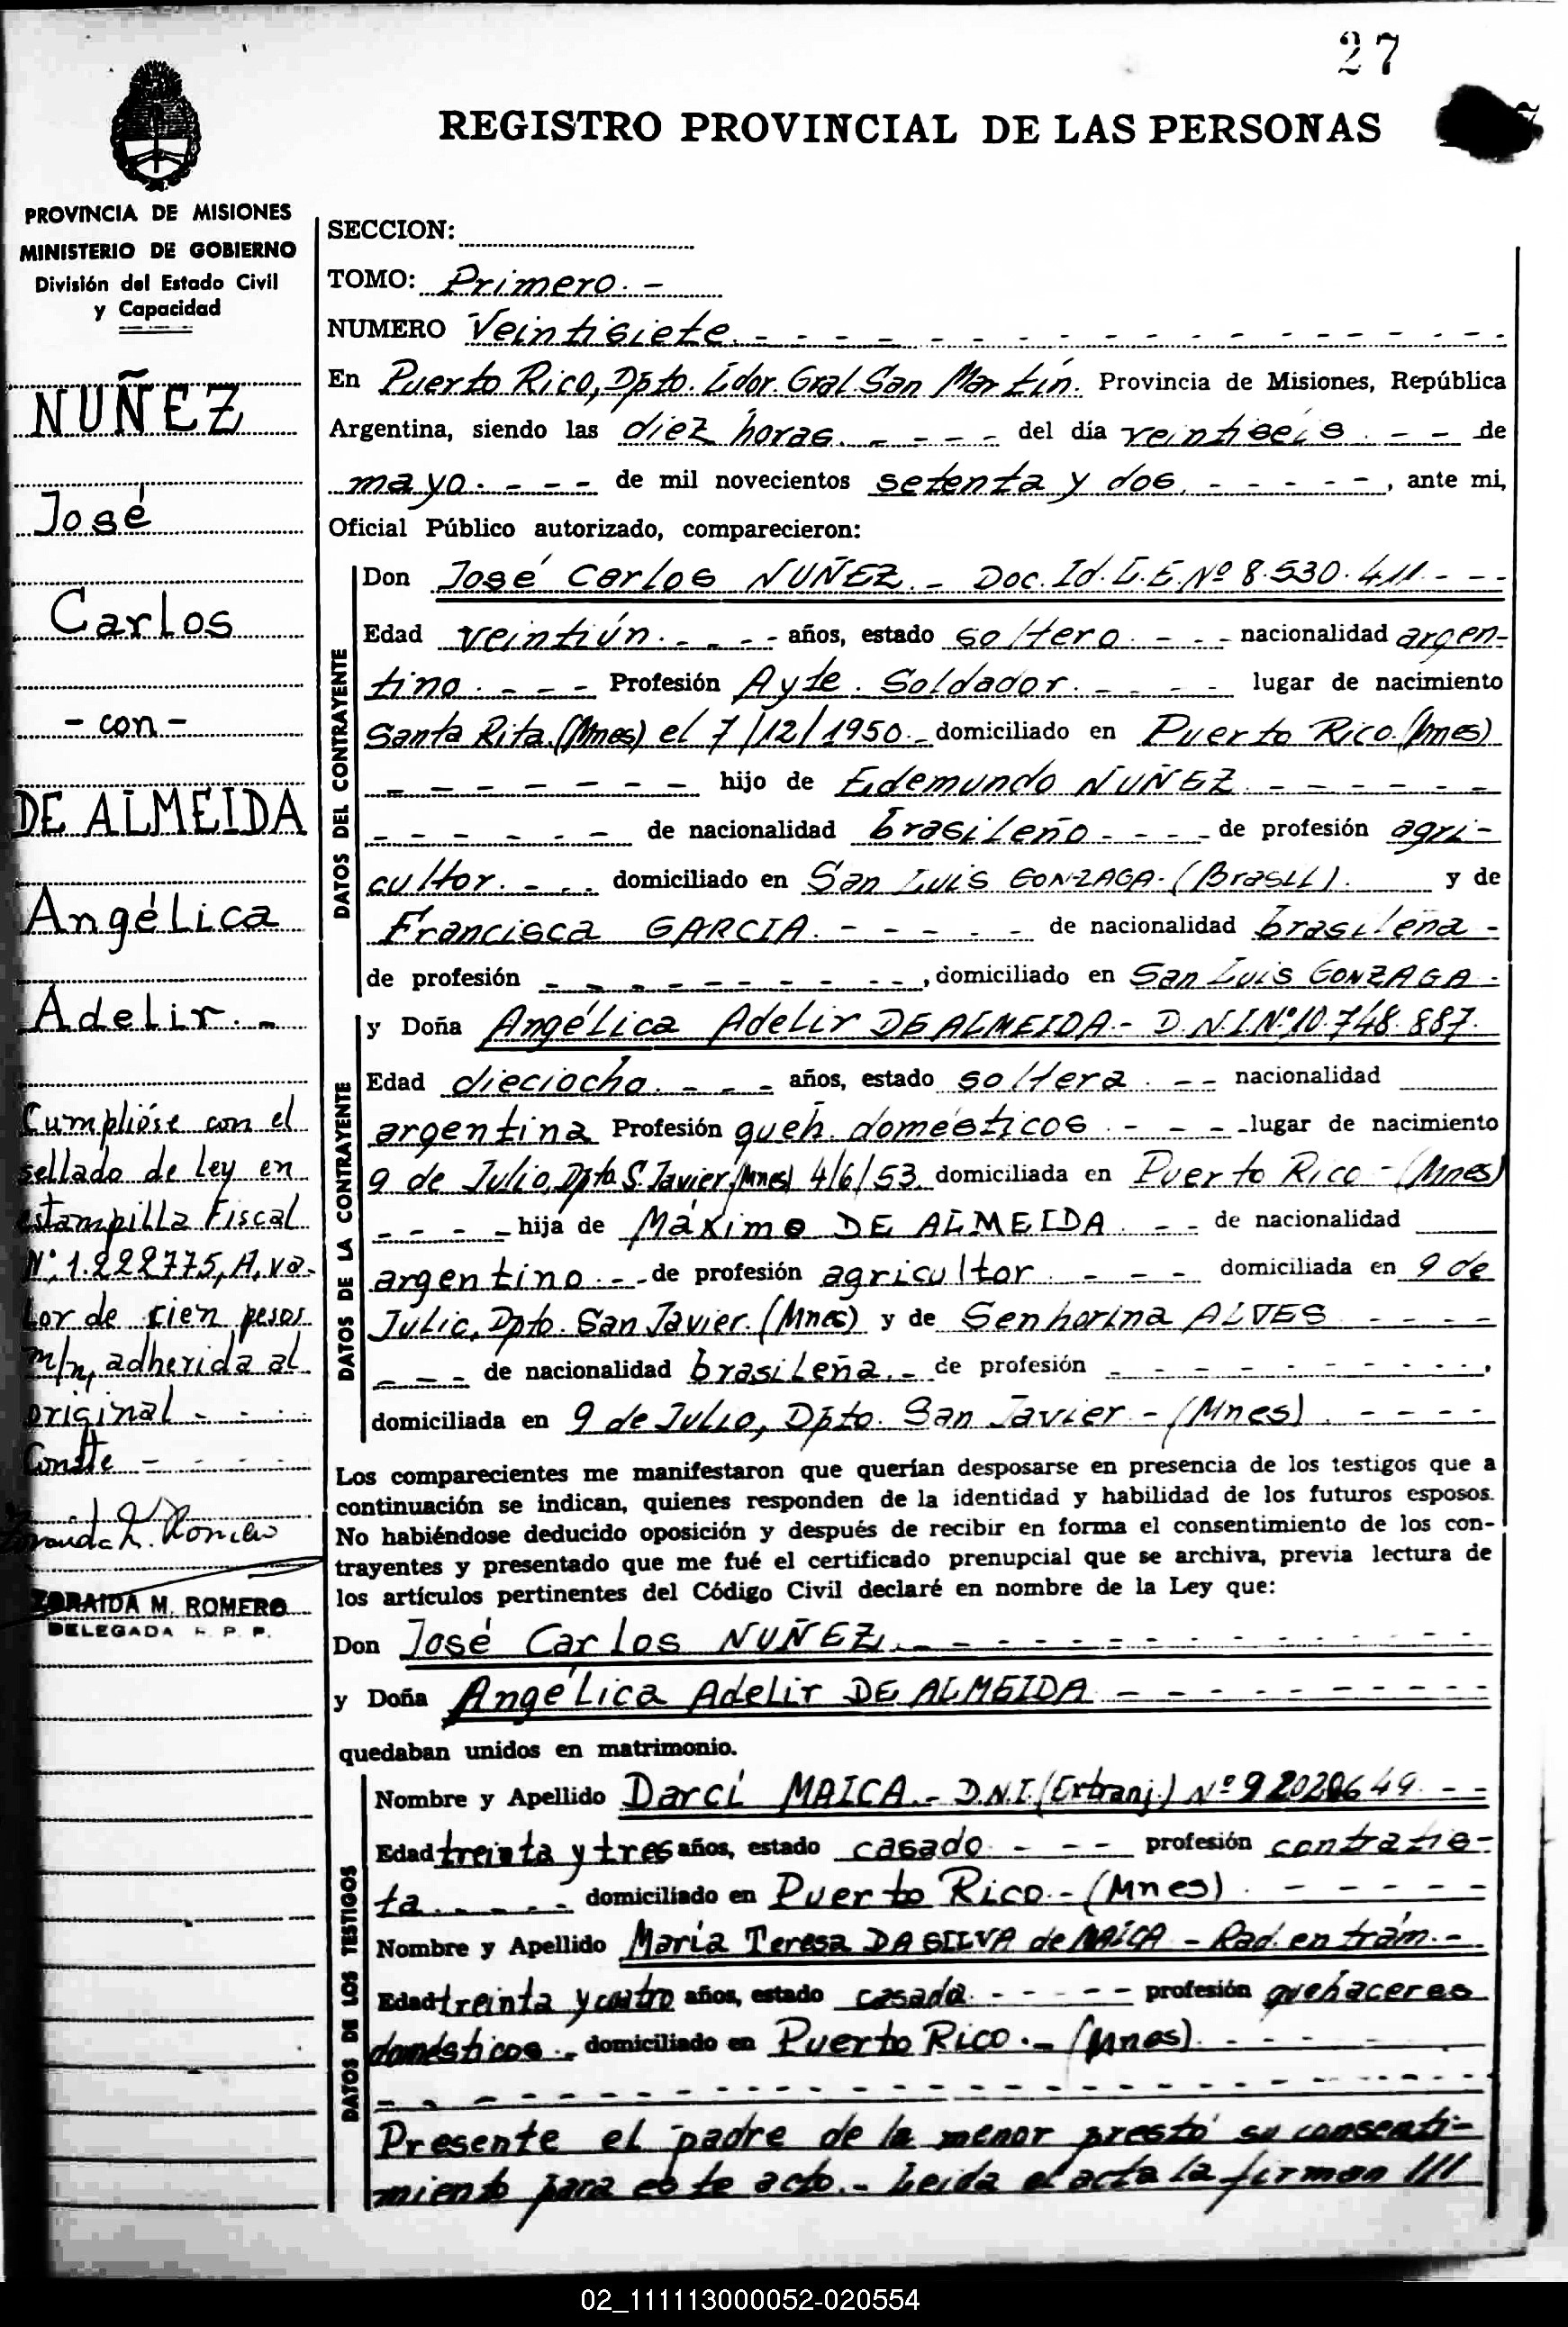 27
REGISTRO PROVINCIAL DE LAS PERSONAS
PROVINCIA DE MISIONES
MINISTERIO DE GOBIERNO
División del Estado Civil
y Capacidad
NUÑEZ
José
Carlos
- con -
DE ALMEIDA
Angélica
Adelir. -
Cumplióse con el
sellado de Ley en
estampilla Fiscal
Nº. 1.222775, A, va-
lor de cien pesos
m/n, adherida al
original - - - -
Conste - - - -
ZORAIDA M. ROMERO
DELEGADA R. P. P.
SECCION:
TOMO: Primero. -
NUMERO Veintisiete. - - - - - - - - - - - - - - - -
En Puerto Rico, Dpto. Ldor. Gral. San Martín. Provincia de Misiones, República
Argentina, siendo las diez horas. - - - - del día veintiséis. - - de
mayo. - - - - de mil novecientos setenta y dos. - - - - - -, ante mi,
Oficial Público autorizado, comparecieron:
DATOS DEL CONTRAYENTE
Don José Carlos NUÑEZ. - Doc. Id. L.E. Nº 8.530.411 - - -
Edad veintiún. - - - - años, estado soltero. - - - nacionalidad argen-
tino. - - - - Profesión Ayte. Soldador. - - - - lugar de nacimiento
Santa Rita. (Mnes) el 7/12/1950. - domiciliado en Puerto Rico. (Mnes)
- - - - - - - hijo de Edemundo NUÑEZ. - - - - - -
- - - - - - de nacionalidad brasileño - - - - de profesión agri-
cultor. - - - domiciliado en San Luis GONZAGA. (Brasil). y de
Francisca GARCIA. - - - - - - de nacionalidad brasileña -
de profesión - - - - - - - - -, domiciliado en San Luis GONZAGA -
DATOS DE LA CONTRAYENTE
y Doña Angélica Adelir DE ALMEIDA - D.N.I. Nº 10.748.887.
Edad dieciocho. - - - - años, estado soltera. - - nacionalidad
argentina Profesión queh. domésticos. - - - - lugar de nacimiento
9 de Julio, Dpto. S. Javier (Mnes) 4/6/53. domiciliada en Puerto Rico - (Mnes)
- - - - hija de Máximo DE ALMEIDA. - - de nacionalidad
argentino. - - de profesión agricultor. - - - domiciliada en 9 de
Julio, Dpto. San Javier. (Mnes) y de Senhorina ALVES - - - -
- - - de nacionalidad brasileña. - de profesión - - - - - - - - - -,
domiciliada en 9 de Julio, Dpto. San Javier - (Mnes). - - - -
Los comparecientes me manifestaron que querían desposarse en presencia de los testigos que a
continuación se indican, quienes responden de la identidad y habilidad de los futuros esposos.
No habiéndose deducido oposición y después de recibir en forma el consentimiento de los con-
trayentes y presentado que me fué el certificado prenupcial que se archiva, previa lectura de
los artículos pertinentes del Código Civil declaré en nombre de la Ley que:
Don José Carlos NUÑEZ. - - - - - - - - - - - - -
y Doña Angélica Adelir DE ALMEIDA - - - - - - - - - -
quedaban unidos en matrimonio.
DATOS DE LOS TESTIGOS
Nombre y Apellido Darcí MAICA. - D.N.I. (Extranj.) Nº - -
Edad treinta y tres años, estado casado. - - - profesión contratis-
ta. - - - - - domiciliado en Puerto Rico. - (Mnes). - - - - -
Nombre y Apellido María Teresa DA SILVA de MAICA - Rad. en trám. -
Edad treinta y cuatro años, estado casada. - - - - - profesión quehaceres
domésticos. - domiciliado en Puerto Rico. - (Mnes). - - - -
- - - - - - - - - - - - - - - - - - - - - -
Presente el padre de la menor prestó su consenti-
miento para este acto. - Leída el acta la firman ///
02_111113000052-020554